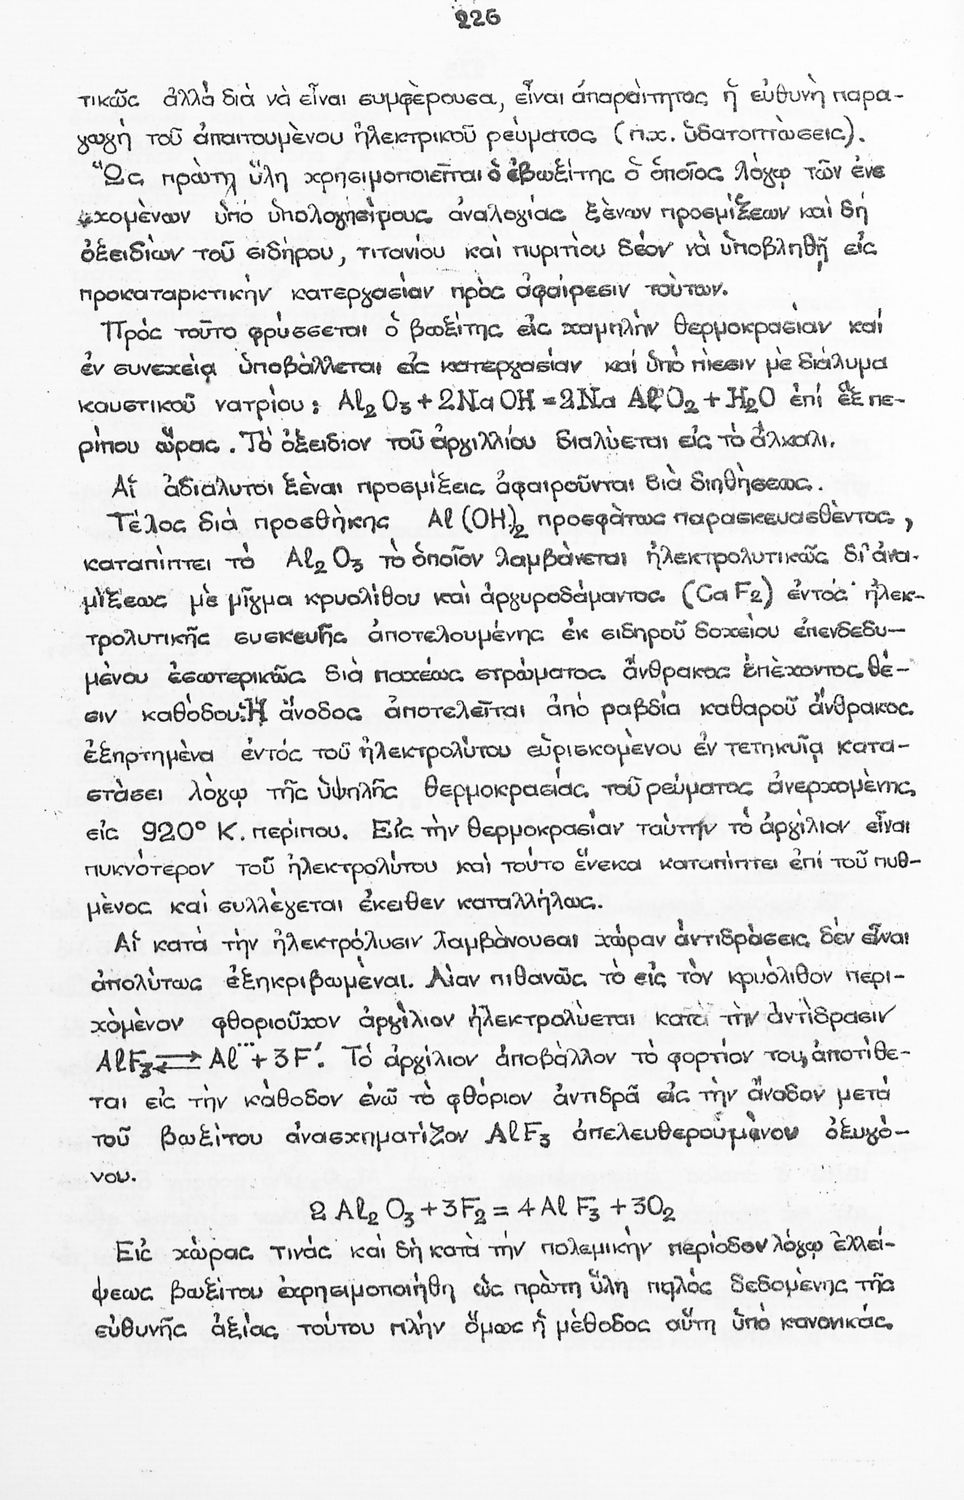 226
τικῶς ἀλλὰ διὰ νὰ εἶναι συμφὲρουσα, εἶναι ἀπαραίτητος ἡ εὐθυνὴ παρα-
γωγὴ τοῦ ἀπαιτουμένου ἠλεκτρικοῦ ρεύματος (π.χ. ὑδατοπτώσεις).
Ὡς πρώτη ὕλη χρησιμοποιεῖται ὁ βωξίτης ὁ ὁποῖος λόγῳ τῶν ἐνε
χομένων ὑπὸ ὑπολογησίμους ἀναλογίας ξένων προσμίξεων καὶ δὴ
ὀξειδίων τοῦ σιδήρου, τιτανίου καὶ πυριτίου δέον νὰ ὑποβληθῇ εἰς
προκαταρκτικὴν κατεργασίαν πρὸς ἀφαίρεσιν τούτων.
Πρὸς τοῦτο φρύσσεται ὁ βωξίτης εἰς χαμηλὴν θερμοκρασίαν καὶ
ἐν συνεχείᾳ ὑποβάλλεται εἰς κατεργασίαν καὶ ὑπὸ πίεσιν μὲ διάλυμα
καυστικοῦ νατρίου: Al₂O₃ + 2NaOH = 2Na AlO₂ + H₂O ἐπὶ ἓξ πε-
ρίπου ὥρας. Τὸ ὀξείδιον τοῦ ἀργιλλίου διαλύεται εἰς τὸ ἄλκαλι.
Αἱ ἀδιάλυτοι ξέναι προσμίξεις ἀφαιροῦνται διὰ διηθήσεως.
Τέλος διὰ προσθήκης Al(OH)₂ προσφάτως παρασκευασθέντος,
καταπίπτει τὸ Al₂O₃ τὸ ὁποῖον λαμβάνεται ἠλεκτρολυτικῶς δι' ἀνα-
μίξεως μὲ μῖγμα κρυολίθου καὶ ἀργυροδάμαντος (CaF₂) ἐντὸς ἠλεκ-
τρολυτικῆς συσκευῆς ἀποτελουμένης ἐκ σιδηροῦ δοχείου ἐπενδεδυ-
μένου ἐσωτερικῶς διὰ παχέως στρώματος ἄνθρακος ἐπέχοντος θέ-
σιν καθόδου. Ἡ ἄνοδος ἀποτελεῖται ἀπὸ ραβδία καθαροῦ ἄνθρακος
ἐξηρτημένα ἐντὸς τοῦ ἠλεκτρολύτου εὑρισκομένου ἐν τετηκυῖᾳ κατα-
στάσει λόγῳ τῆς ὑψηλῆς θερμοκρασίας τοῦ ρεύματος ἀνερχομένης
εἰς 920° K. περίπου. Εἰς τὴν θερμοκρασίαν ταύτην τὸ ἀργίλιον εἶναι
πυκνότερον τοῦ ἠλεκτρολύτου καὶ τούτο ἕνεκα καταπίπτει ἐπὶ τοῦ πυθ-
μένος καὶ συλλέγεται ἐκεῖθεν καταλλήλως.
Αἱ κατὰ τὴν ἠλεκτρόλυσιν λαμβάνουσαι χώραν ἀντιδράσεις δὲν εἶναι
ἀπολύτως ἐξηκριβωμέναι. Λίαν πιθανῶς τὸ εἰς τὸν κρυόλιθον περι-
χόμενον φθοριοῦχον ἀργίλιον ἠλεκτρολύεται κατὰ τὴν ἀντίδρασιν
AlF₃ ⇄ Al··· + 3F'. Τὸ ἀργίλιον ἀποβάλλον τὸ φορτίον του, ἀποτίθε-
ται εἰς τὴν κάθοδον ἐνῶ τὸ φθόριον ἀντιδρᾶ εἰς τὴν ἄνοδον μετὰ
τοῦ βωξίτου ἀνασχηματίζον AlF₃ ἀπελευθερουμένου ὀξυγό-
νου.
2 Al₂O₃ + 3F₂ = 4AlF₃ + 3O₂
Εἰς χώρας τινὰς καὶ δὴ κατὰ τὴν πολεμικὴν περίοδον λόγῳ ἐλλεί-
ψεως βωξίτου ἐχρησιμοποιήθη ὡς πρώτη ὕλη πηλὸς δεδομένης τῆς
εὐθυνῆς ἀξίας τούτου πλὴν ὅμως ἡ μέθοδος αὕτη ὑπὸ κανονικάς